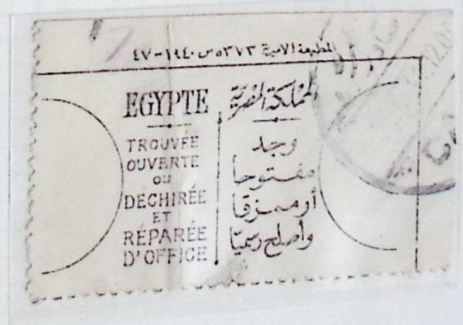 المطبعة الاميرية ٣٢٧٣ س ١٩٤٠-٤٧
EGYPTE
TROUVÉE
OUVERTE
OU
DÉCHIRÉE
ET
RÉPARÉE
D'OFFICE
المملكة المصرية
وجد
مفتوحا
أو ممزقا
وأصلح رسميا